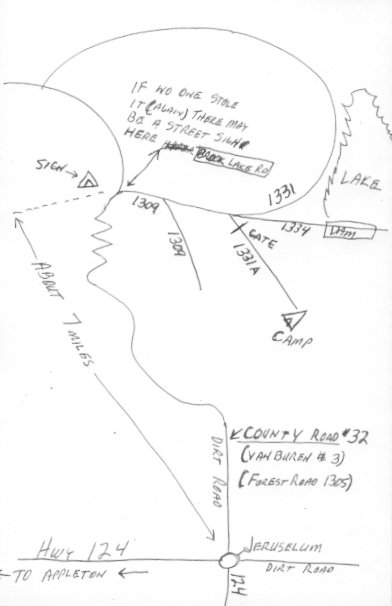 IF NO ONE STOLE
IT (AGAIN) THERE MAY
BE A STREET SIGN
HERE BROCK LAKE RD
SIGN
LAKE
1331
1309
1334
DAM
GATE
1309
1331A
CAMP
ABOUT
7
MILES
COUNTY ROAD #32
(VAN BUREN # 3)
(FOREST ROAD 1305)
DIRT ROAD
HWY 124
JERUSELUM
DIRT ROAD
TO APPLETON
124